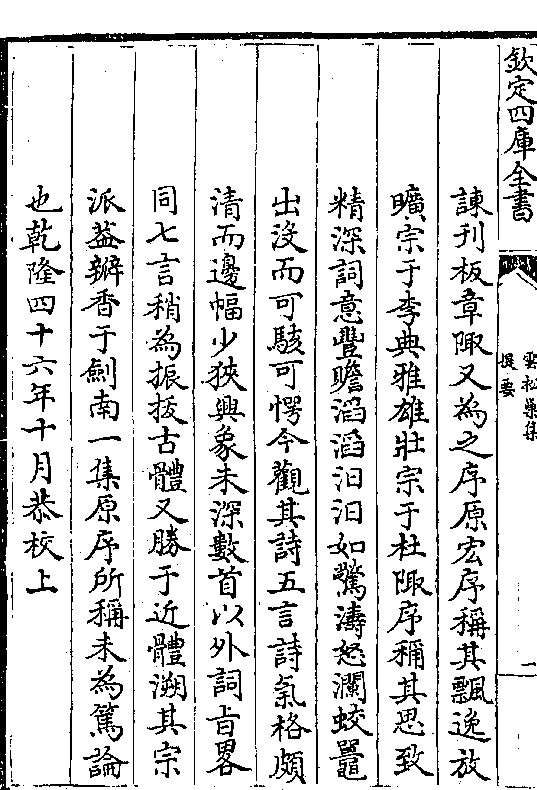 欽定四庫全書
雲松巢集
提要
一
諫刊板章陬又為之序原宏序稱其飄逸放
曠宗于李典雅雄壯宗于杜陬序稱其思致
精深詞意豐贍滔滔汩汩如驚濤怒瀾蛟鼉
出没而可駭可愕今觀其詩五言詩氣格頗
清而邊幅少狹興象未深數首以外詞旨畧
同七言稍為振拔古體又勝于近體溯其宗
派葢瓣香于劍南一集原序所稱未為篤論
也乾隆四十六年十月恭校上